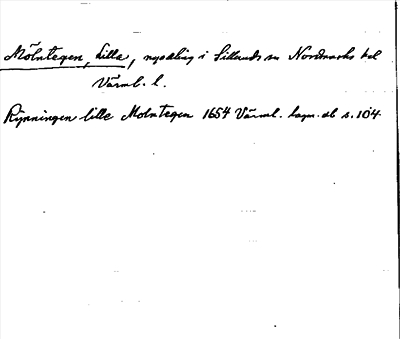 Mölntegen, Lilla, nyodling i Sillerud sn Nordmarks hd
Värml. l.
Rÿnningen lille Molntegen 1654 Värml. lagm. db s. 104.